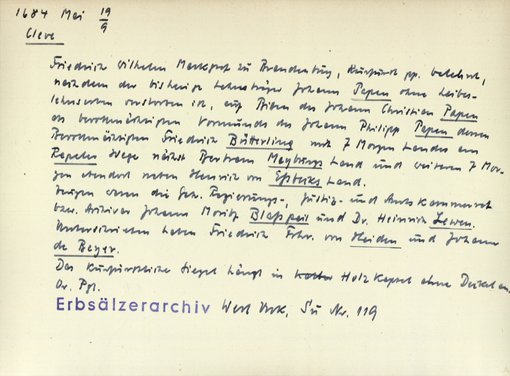 1684 Mai 19/9
Cleve
Friedrich Wilhelm Markgraf zu Brandenburg, Kurfürst pp. belehnt,
nachdem der bisherige Lehnsträger Johann Papen ohne Leibes-
lehnserben verstorben ist, auf Bitten des Johann Christian Papen
als Vormunds des Johann Philipp Papen deren
Bevollmächtigten Friedrich Bütterling mit 7 Morgen Landes am
Wege nächst Bertram Meyburgs Land und weiteren 7 Mor-
gen ebendort neben Heinrich von Land.
Zeugen waren die Geh. Regierungs-, Justiz- und Amtskammerrat
bzw. Archivar Johann Moritz Blaspeil und Dr. Heinrich
Unterschrieben haben Friedrich Frhr. von Heiden und Johann
de Beyer.
Das kurfürstliche Siegel hängt in Holzkapsel ohne Deckel an.
Or. Pgt.
Erbsälzerarchiv Werl Urk. Nr. 119